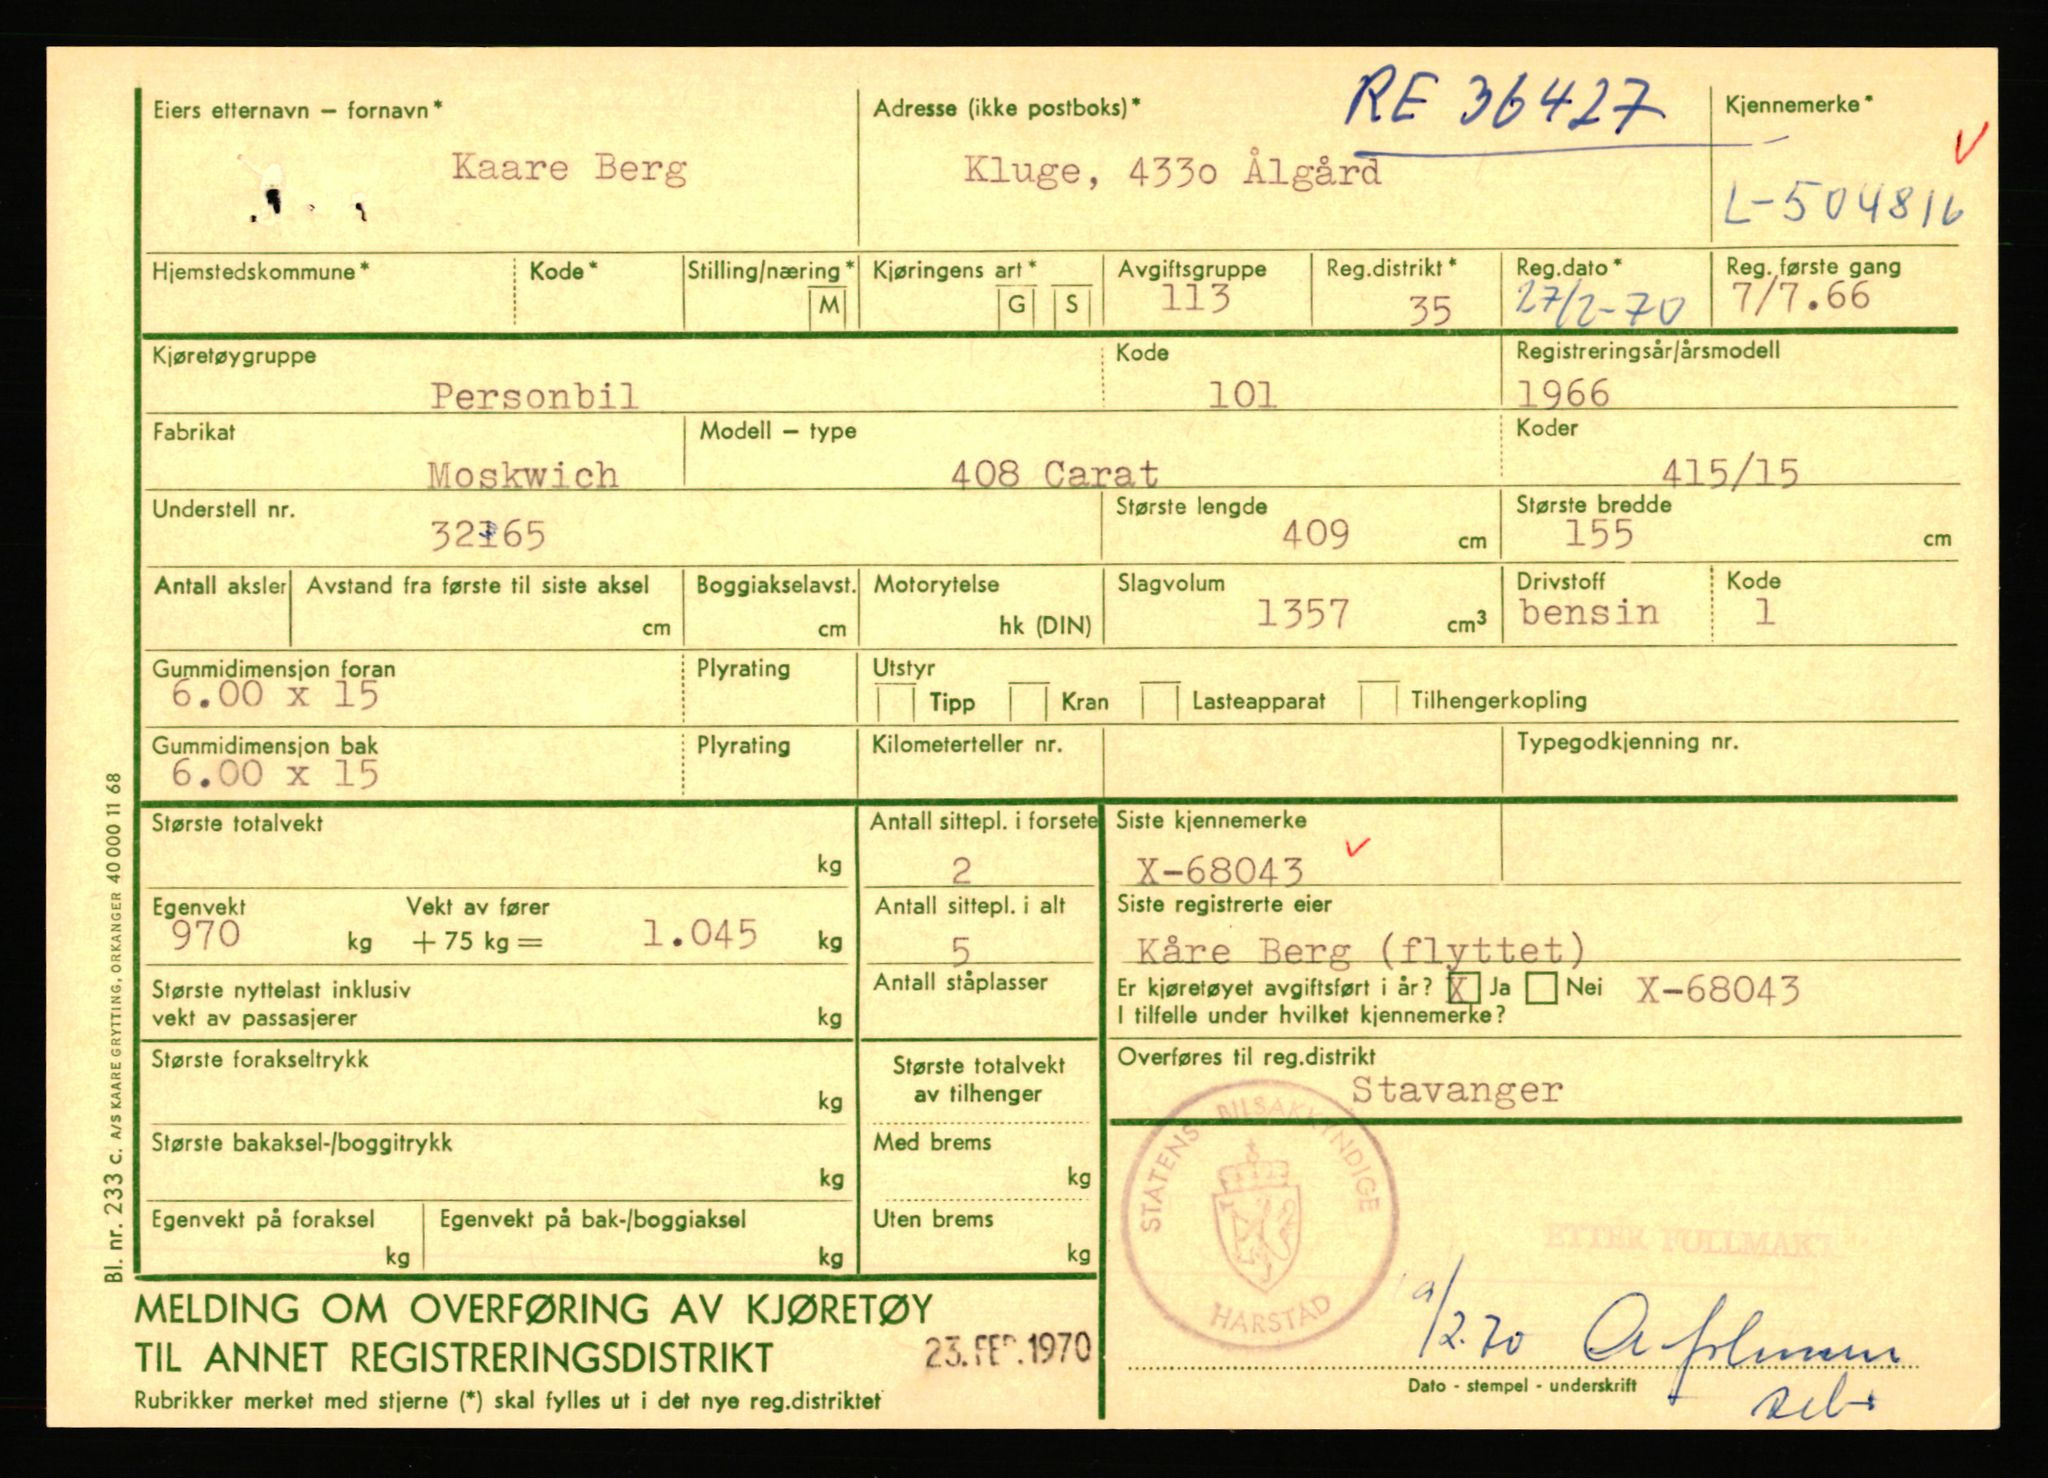 RE 36427
Eiers etternavn – fornavn*
Adresse (ikke postboks)*
Kjennemerke*
Kaare Berg
Kluge, 4330 Ålgård
L-504816
Hjemstedskommune* Kode* Stilling/næring* Kjøringens art* Avgiftsgruppe Reg.distrikt* Reg.dato* Reg. første gang
M G S 113 35 27/2-70 7/7.66
Kjøretøygruppe Kode Registreringsår/årsmodell
Personbil 101 1966
Fabrikat Modell – type Koder
Moskwich 408 Carat 415/15
Understell nr. Største lengde Største bredde
409 cm 155 cm
Antall aksler Avstand fra første til siste aksel Boggiakselavst. Motorytelse Slagvolum Drivstoff Kode
cm cm hk (DIN) 1357 cm³ bensin 1
Gummidimensjon foran Plyrating Utstyr
6.00 x 15 Tipp Kran Lasteapparat Tilhengerkopling
Gummidimensjon bak Plyrating Kilometerteller nr. Typegodkjenning nr.
6.00 x 15
Største totalvekt Antall sittepl. i forsete Siste kjennemerke
kg 2 X-68043
Egenvekt Vekt av fører Antall sittepl. i alt Siste registrerte eier
970 kg + 75 kg = 1.045 kg 5 Kåre Berg (flyttet)
Største nyttelast inklusiv Antall ståplasser Er kjøretøyet avgiftsført i år? X Ja Nei X-68043
vekt av passasjerer kg I tilfelle under hvilket kjennemerke?
Største forakseltrykk Største totalvekt Overføres til reg.distrikt
kg av tilhenger Stavanger
Største bakaksel-/boggitrykk Med brems
kg kg
Egenvekt på foraksel Egenvekt på bak-/boggiaksel Uten brems
kg kg kg
STATENS BILSAKKYNDIGE
HARSTAD
ETTER FULLMAKT
MELDING OM OVERFØRING AV KJØRETØY
TIL ANNET REGISTRERINGSDISTRIKT
23. FEB. 1970
/2.70
Dato - stempel - underskrift
Rubrikker merket med stjerne (*) skal fylles ut i det nye reg.distriktet
Bl. nr. 233 c. A/S KAARE GRYTTING, ORKANGER 40 000 11 68